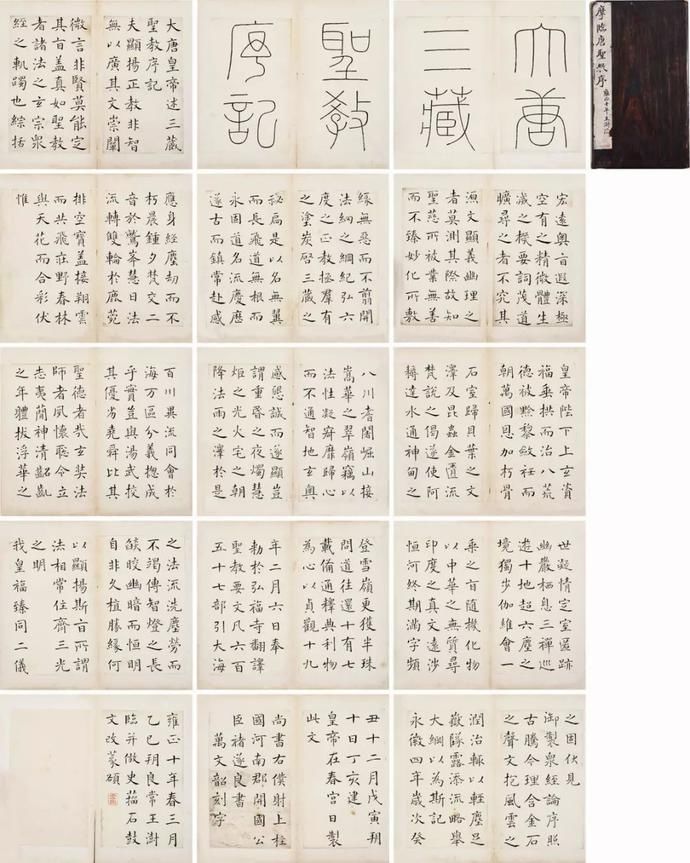 摩臨唐聖教序
雍正十年王澍臨
大唐
三藏
聖教
序記
大唐皇帝述三藏
聖教序記
夫顯揚正教非智
無以廣其文崇闡
微言非賢莫能定
其旨蓋真如聖教
者諸法之玄宗衆
經之軌躅也綜括
宏遠奧旨遐深極
空有之精微體生
滅之機要詞茂道
曠尋之者不究其
源文顯義幽理之
者莫測其際故知
聖慈所被業無善
而不臻妙化所敷
緣無惡而不翦開
法網之綱紀弘六
度之正教拯羣有
之塗炭啓三藏之
秘扃是以名無翼
而長飛道無根而
永固道名流慶歷
遂古而鎮常赴感
應身經塵劫而不
朽晨鍾夕梵交二
音於鷲峯慧日法
流轉雙輪於鹿菀
排空寶蓋接翔雲
而共飛莊野春林
與天花而合彩伏
惟
皇帝陛下上玄資
福垂拱而治八荒
德被黔黎斂衽而
朝萬國恩加朽骨
石室歸貝葉之文
澤及昆蟲金匱流
梵說之偈遂使阿
耨達水通神甸之
八川耆闍崛山接
嵩華之翠嶺竊以
法性凝寂靡歸心
而不通智地玄奧
感懇誠而遂顯豈
謂重昏之夜燭慧
炬之光火宅之朝
降法雨之澤於是
百川異流同會於
海万區分義摠成
乎實豈與湯武挍
其優劣堯舜比其
聖德者哉玄奘法
師者夙懷聡令立
志夷簡神清齠齓
之年體拔浮華之
世凝情定室匿跡
幽巖栖息三禪巡
遊十地超六塵之
境獨步伽維會一
乘之旨隨機化物
以中華之無質尋
印度之真文遠涉
恒河終期滿字頻
登雪嶺更獲半珠
問道往還十有七
載備通釋典利物
為心以貞觀十九
年二月六日奉
勅於弘福寺翻譯
聖教要文凡六百
五十七部引大海
之法流洗塵勞而
不竭傳智燈之長
燄皎幽暗而恒明
自非久植勝緣何
以顯揚斯旨所謂
法相常住齊三光
之明
我皇福臻同二儀
之固伏見
御製衆經論序照
古騰今理含金石
之聲文抱風雲之
潤治輒以輕塵足
嶽墜露添流略舉
大綱以為斯記
永徽四年歲次癸
丑十二月戊寅朔
十日丁亥建
皇帝在春宮日製
此文
尚書右僕射上柱
國河南郡開國公
臣褚遂良書
萬文韶刻字
雍正十年春三月
乙巳朔良常王澍
臨并倣史籀石鼓
文改篆頟